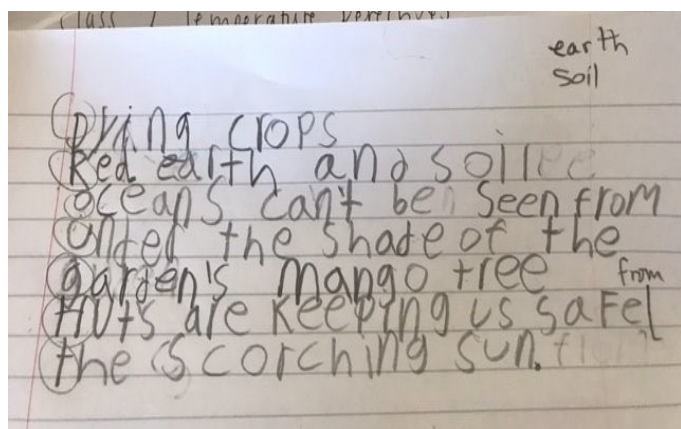 earth
soil
Drying crops
Red earth and soil
oceans can't be seen from
Under the shade of the
garden's mango tree
from
HUts are keeping us safe
the scorching sun.